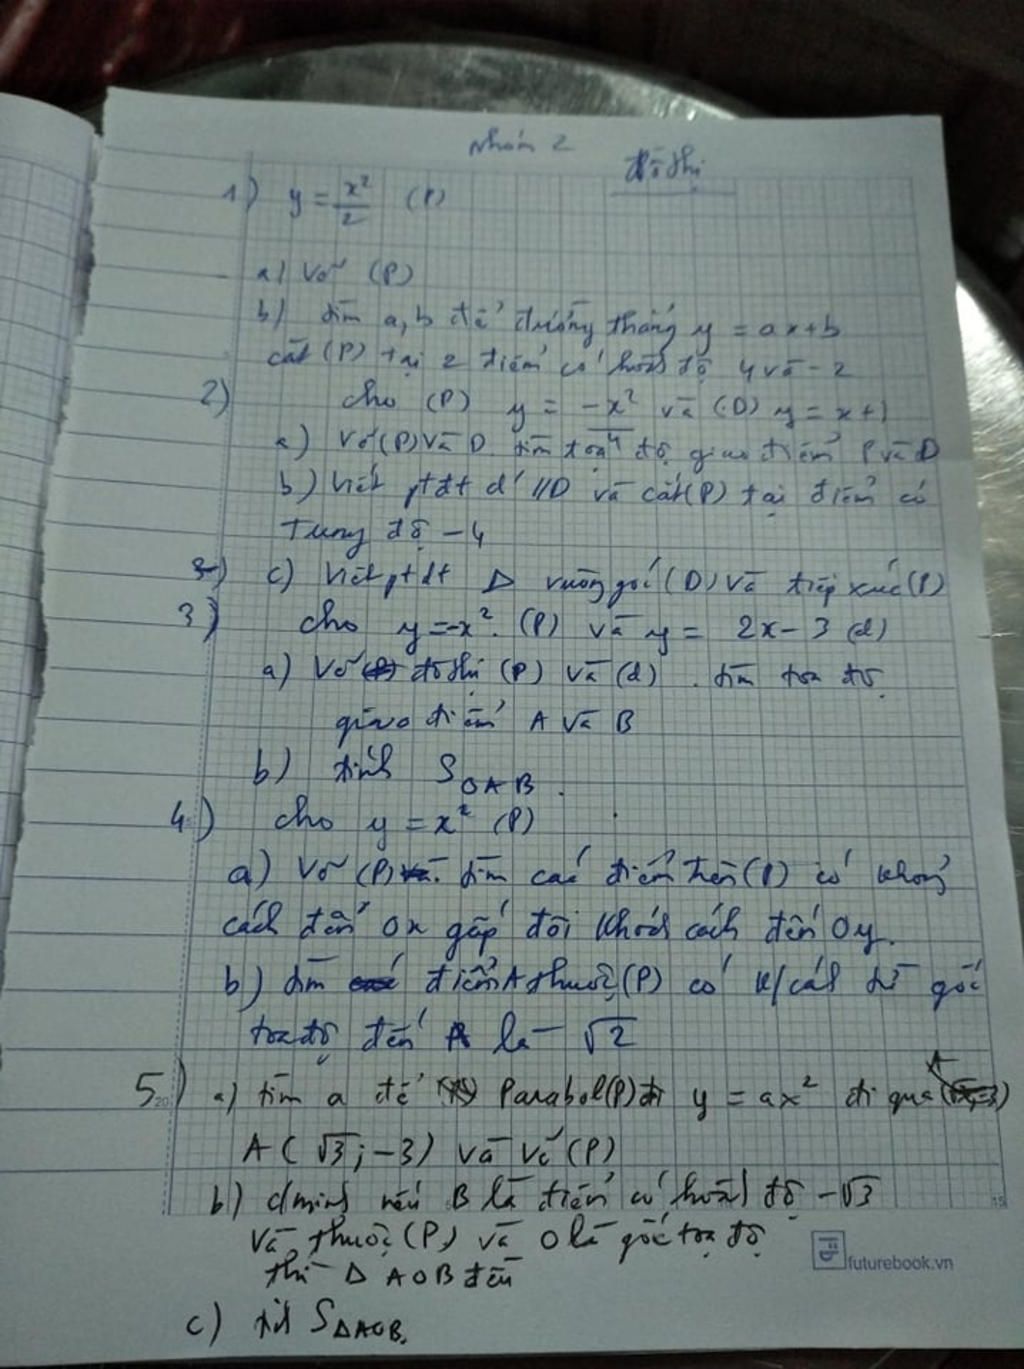 Nhóm 2
đồ thị
1) y = x²/2 (P)
a) Vẽ (P)
b) tìm a, b để đường thẳng y = ax+b
cắt (P) tại 2 điểm có hoành độ 4 và -2
2) cho (P) y = -x²/4 và (D) y = x+1
a) Vẽ (P) và D. tìm toạ độ giao điểm P và D
b) Viết ptđt d' // D và cắt (P) tại điểm có
Tung độ -4
c) Viết ptđt Δ vuông góc (D) và tiếp xúc (P)
3) cho y = -x². (P) và y = 2x-3 (d)
a) Vẽ đồ thị (P) và (d). tìm toạ độ
giao điểm A và B
b) tính S OAB.
4) cho y = x² (P)
a) Vẽ (P). tìm các điểm trên (P) có khoảng
cách đến Ox gấp đôi khoảng cách đến Oy.
b) tìm điểm A thuộc (P) có k/cách từ gốc
toạ độ đến A là √2
5) a) tìm a để Parabol (P) y = ax² đi qua
A(√3; -3) và vẽ (P)
b) c/minh nếu B là điểm có hoành độ -√3
và thuộc (P) và O là gốc toạ độ
thì Δ AOB đều
c) tính SΔAOB.
futurebook.vn